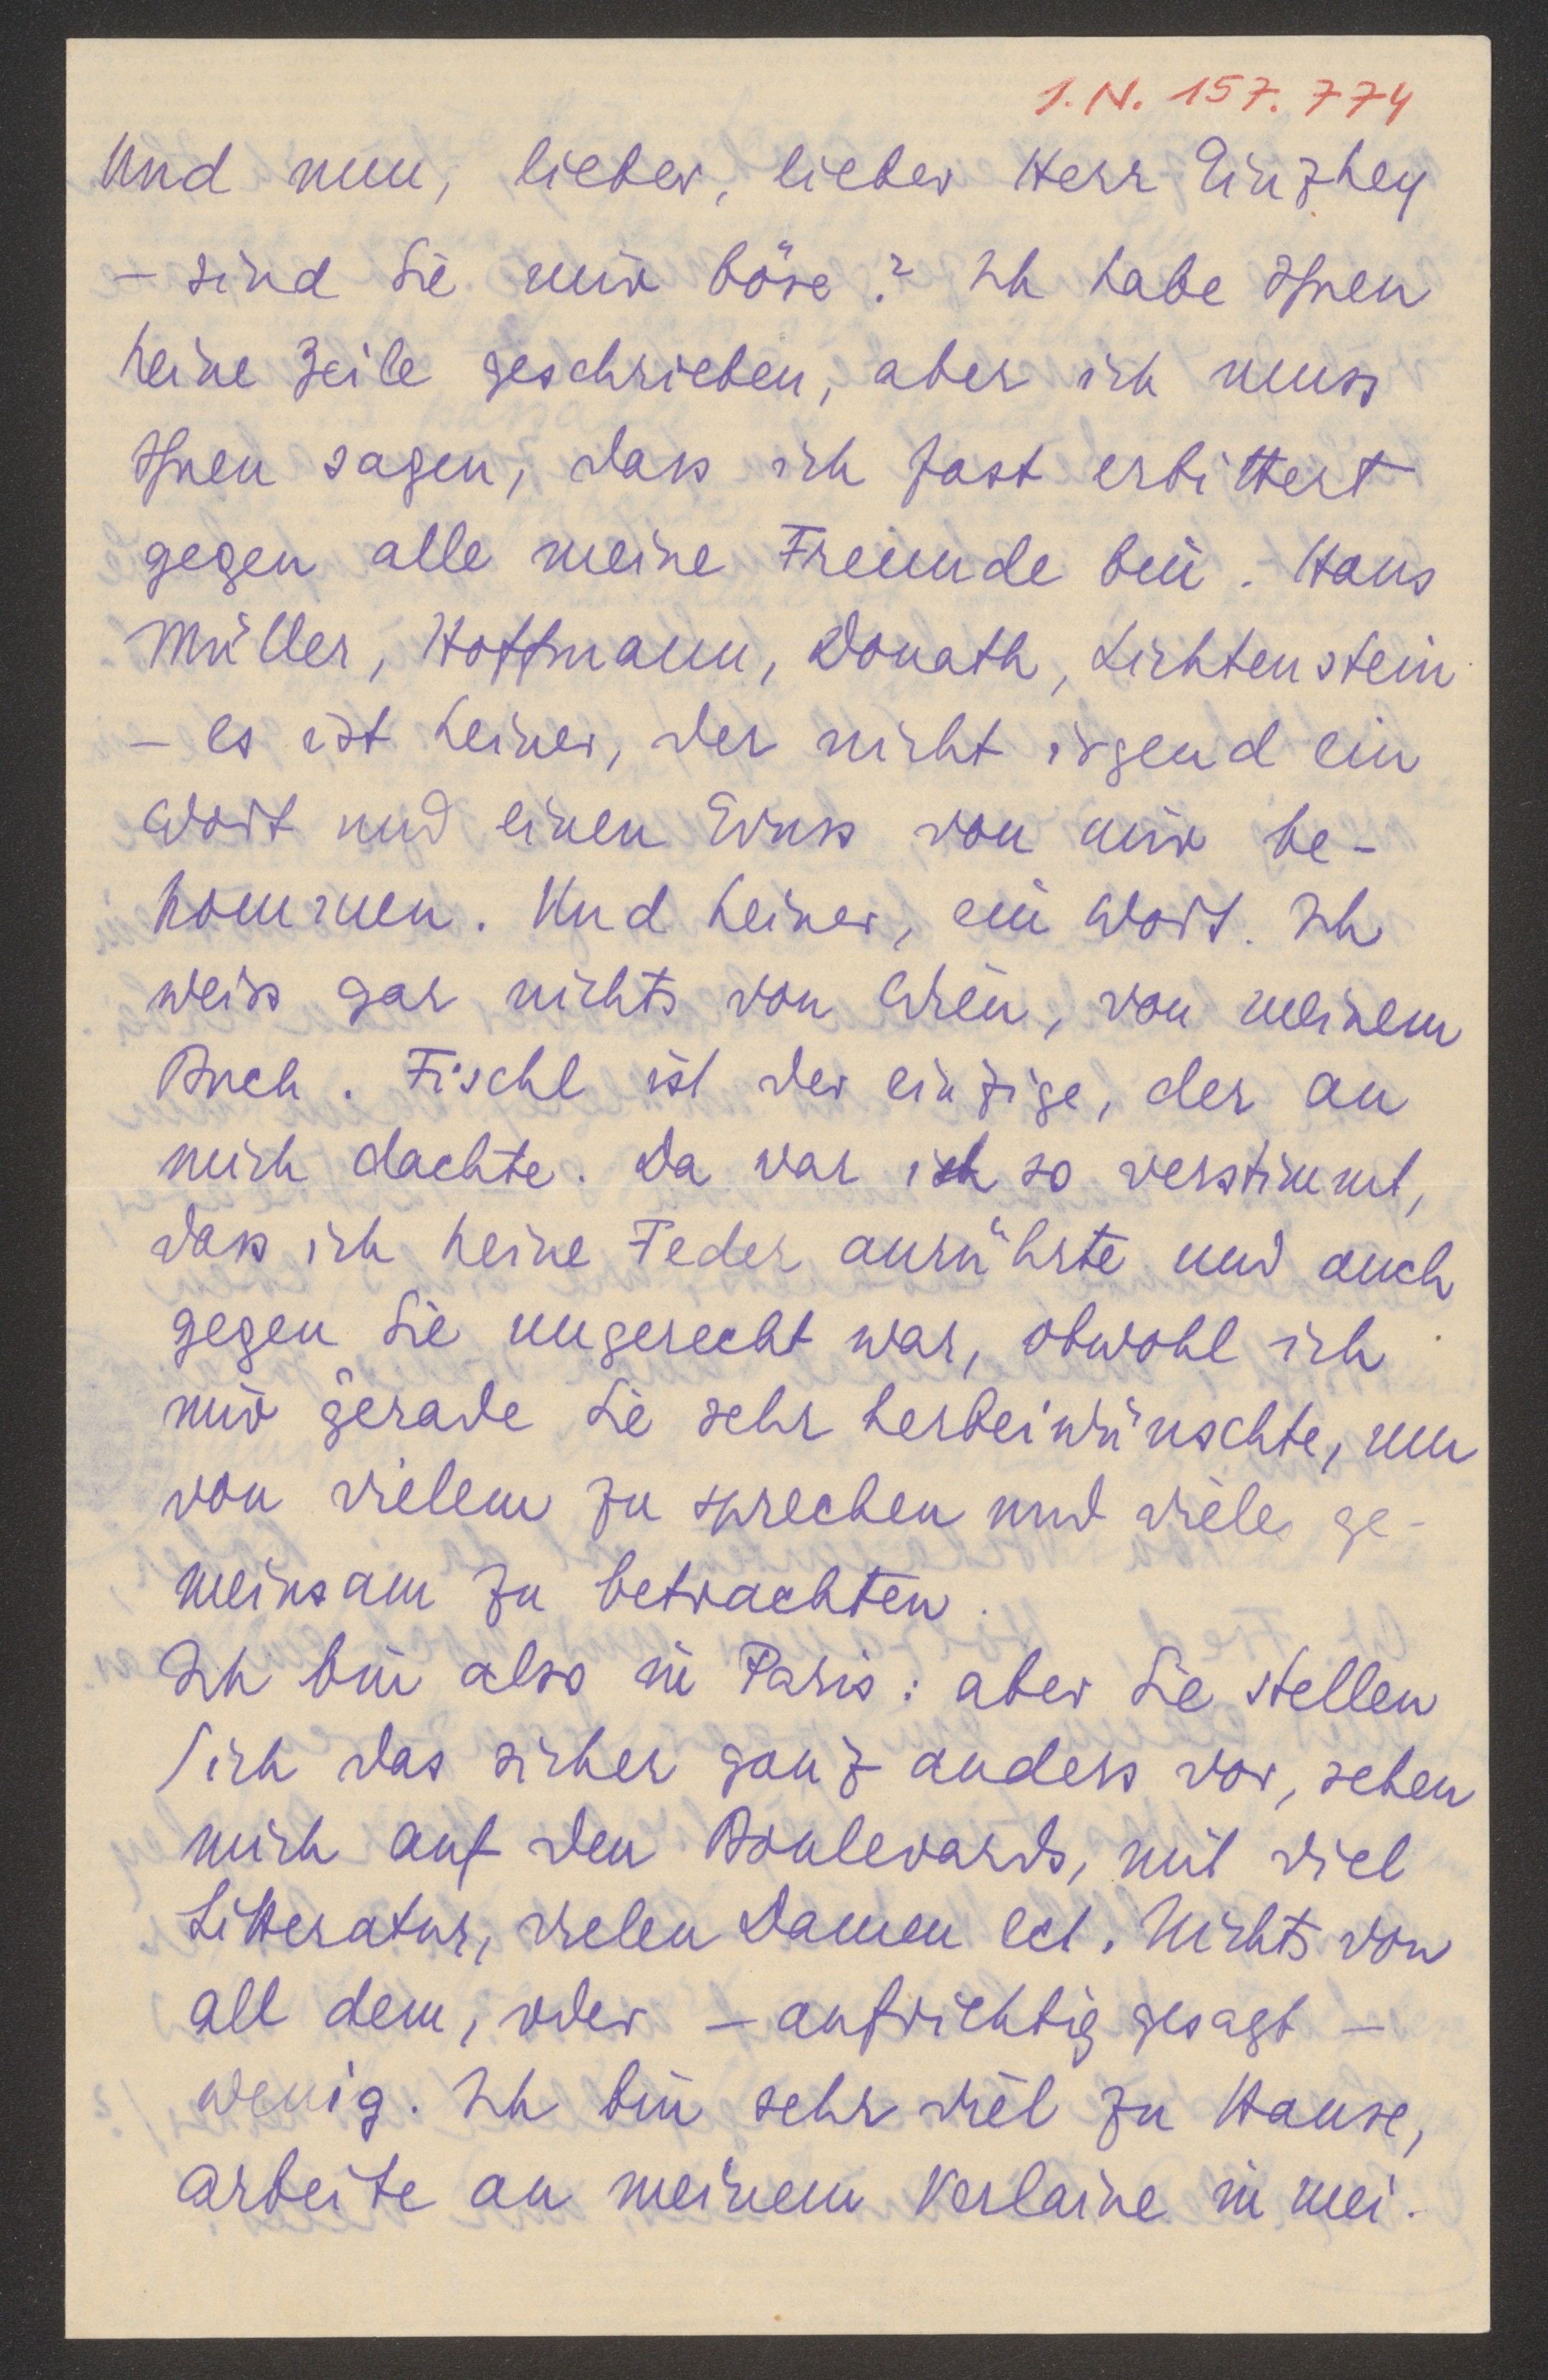 I.N. 157.774
Und nun, lieber, lieber Herr Ginzkey
– sind Sie mir böse? Ich habe Ihnen
keine Zeile geschrieben, aber ich muss
Ihnen sagen, dass ich fast erbittert
gegen alle meine Freunde bin. Hans
Müller, Hoffmann, Donath, Lichtenstein
– es ist keiner, der nicht irgend ein
Wort und einen Gruss von mir be-
kommen. Und keiner, ein Wort. Ich
weiss gar nichts von Wien, von meinem
Buch. Fischl ist der einzige, der an
mich dachte. Da war ich so verstimmt,
dass ich keine Feder anrührte und auch
gegen Sie ungerecht war, obwohl ich
mir gerade Sie sehr herbeiwünschte, um
von vielem zu sprechen und vieles ge-
meinsam zu betrachten.
Ich bin also in Paris: aber Sie stellen
sich das sicher ganz anders vor, sehen
mich auf den Boulevards, mit viel
Litteratur, vielen Damen ect. Nichts von
all dem, oder – aufrichtig gesagt –
wenig. Ich bin sehr viel zu Hause,
arbeite an meinem Verlaine in mei-